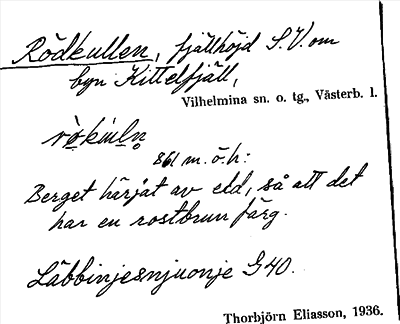 Rödkullen, fjällhöjd S.V. om
byn Kittelfjäll,
Vilhelmina sn. o. tg., Västerb. l.
861 m. ö. h:
Berget härjat av eld, så att det
har en rostbrun färg.
Läbbinjesnjuonje G40.
Thorbjörn Eliasson, 1936.